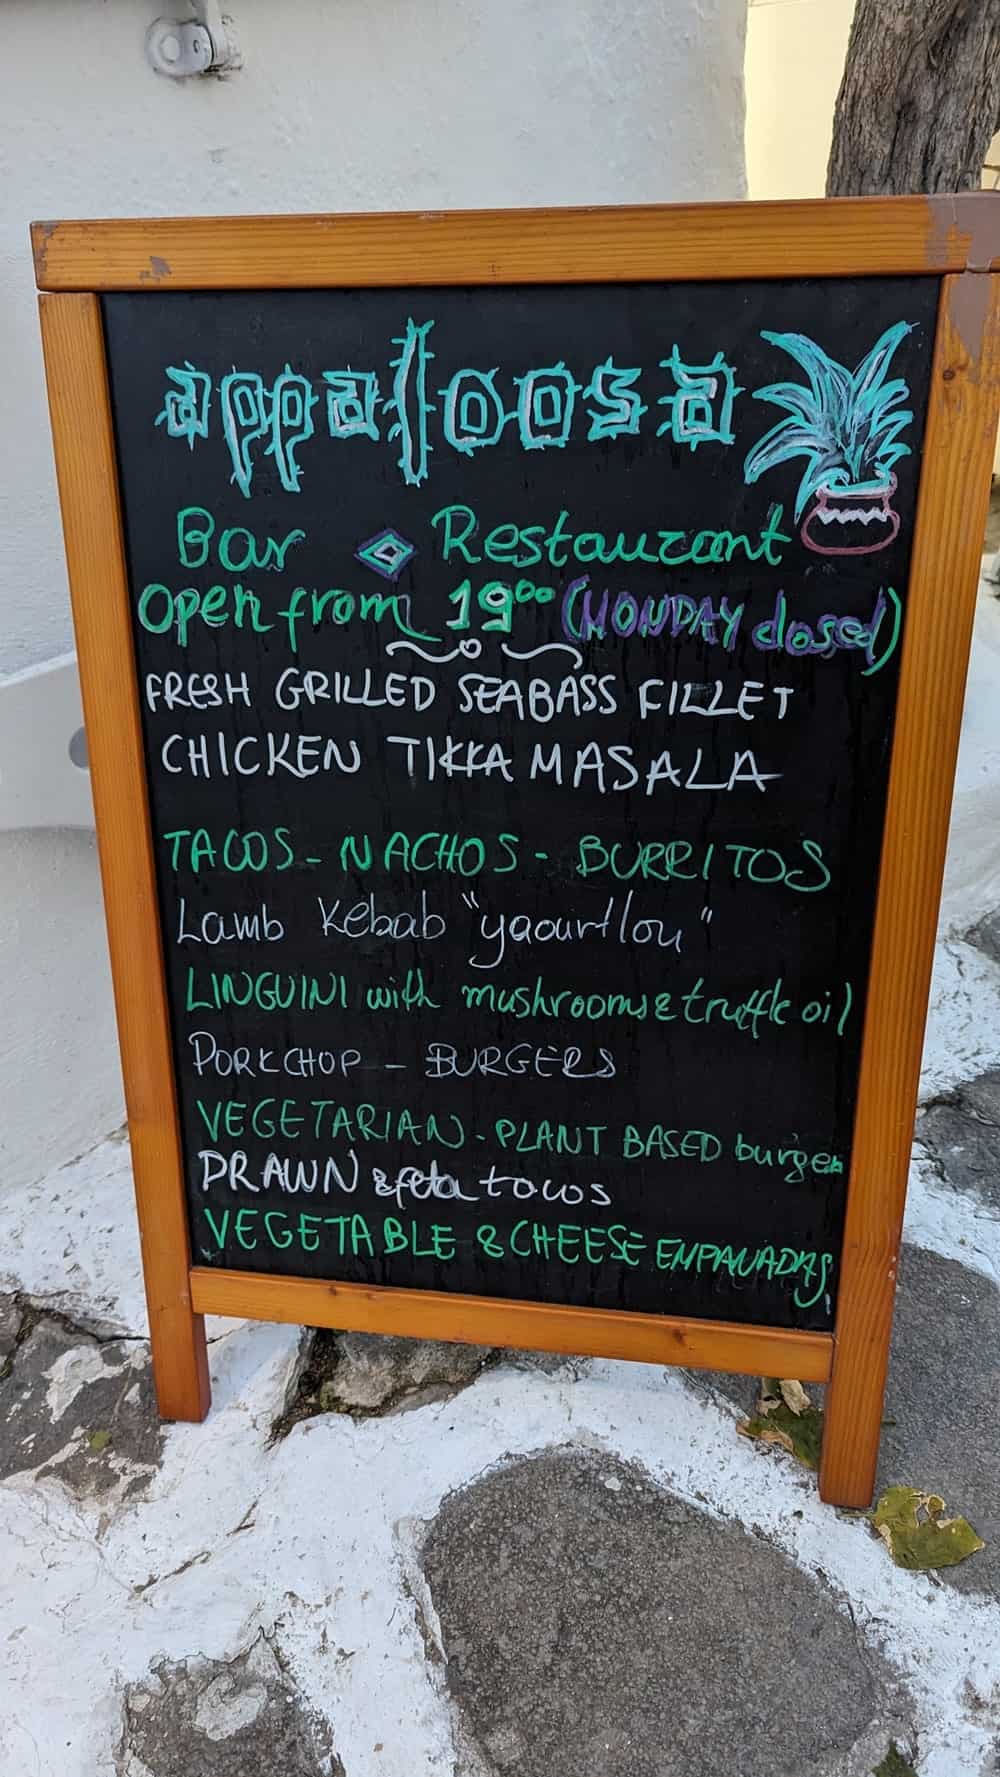 appaloosa
Bar Restaurant
Open from 19⁰⁰ (MONDAY closed)
FRESH GRILLED SEABASS FILLET
CHICKEN TIKKA MASALA
TACOS - NACHOS - BURRITOS
Lamb Kebab "yaourtlou"
LINGUINI with mushrooms & truffle oil
PORKCHOP - BURGERS
VEGETARIAN - PLANT BASED burger
DRAWN & feta tacos
VEGETABLE & CHEESE EMPANADAS